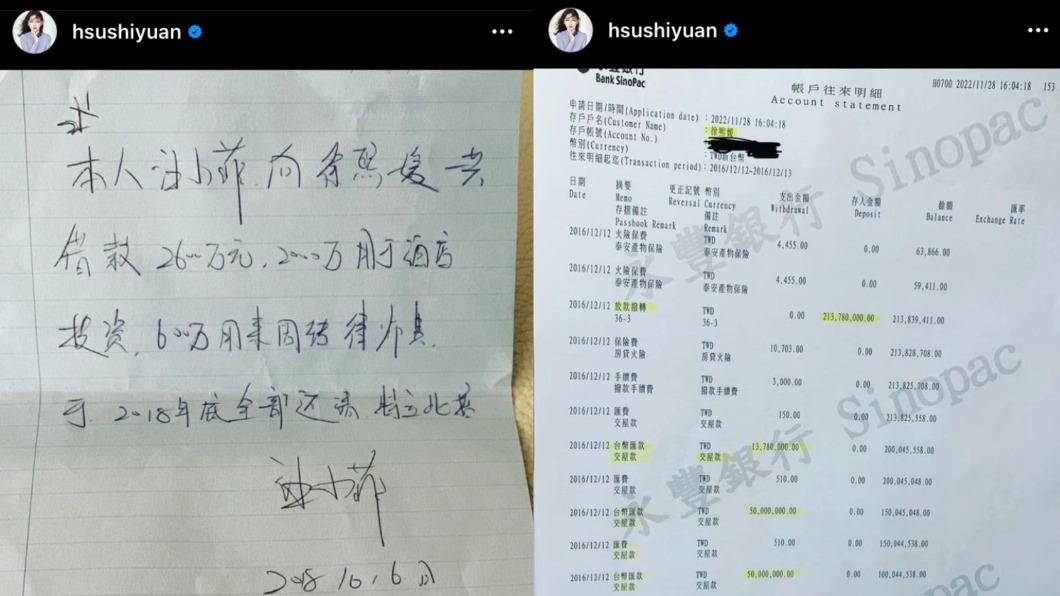 hsushiyuan
本人汪小菲向徐熙媛共
借款2600万元,2000万用于酒店
投资,600万用来周转
于2018年底全部还清,特立此
汪小菲
hsushiyuan
永豐銀行
Bank SinoPac
H0700 2022/11/28 16:04:18 153
帳戶往來明細
Account statement
申請日期/時間(Application date) : 2022/11/28 16:04:18
存戶戶名(Customer Name) : 徐明媛
存戶帳號(Account No.)
幣別(Currency) : TWD新台幣
往來明細起迄(Transaction period) : 2016/12/12~2016/12/13
日期 摘要 更正記號 幣別 支出金額 存入金額 餘額 匯率
Date Memo Reversal Currency Withdrawal Deposit Balance Exchange Rate
存摺備註 備註
Passbook Remark Remark
2016/12/12 火險保費 TWD 4,455.00 0.00 63,866.00
泰安產物保險 泰安產物保險
2016/12/12 火險保費 TWD 4,455.00 0.00 59,411.00
泰安產物保險 泰安產物保險
2016/12/12 放款撥轉 TWD 0.00 213,780,000.00 213,839,411.00
36-3 36-3
2016/12/12 保險費 TWD 10,703.00 0.00 213,828,708.00
房貸火險 房貸火險
2016/12/12 手續費 TWD 3,000.00 0.00 213,825,708.00
撥款手續費 撥款手續費
2016/12/12 匯費 TWD 150.00 0.00 213,825,558.00
交屋款 交屋款
2016/12/12 台幣匯款 TWD 13,780,000.00 0.00 200,045,558.00
交屋款 交屋款
2016/12/12 匯費 TWD 510.00 0.00 200,045,048.00
交屋款 交屋款
2016/12/12 台幣匯款 TWD 50,000,000.00 0.00 150,045,048.00
交屋款 交屋款
2016/12/12 匯費 TWD 510.00 0.00 150,044,538.00
交屋款 交屋款
2016/12/12 台幣匯款 TWD 50,000,000.00 0.00 100,044,538.00
交屋款 交屋款
永豐銀行 Sinopac
永豐銀行 Sinopac
Sinopac